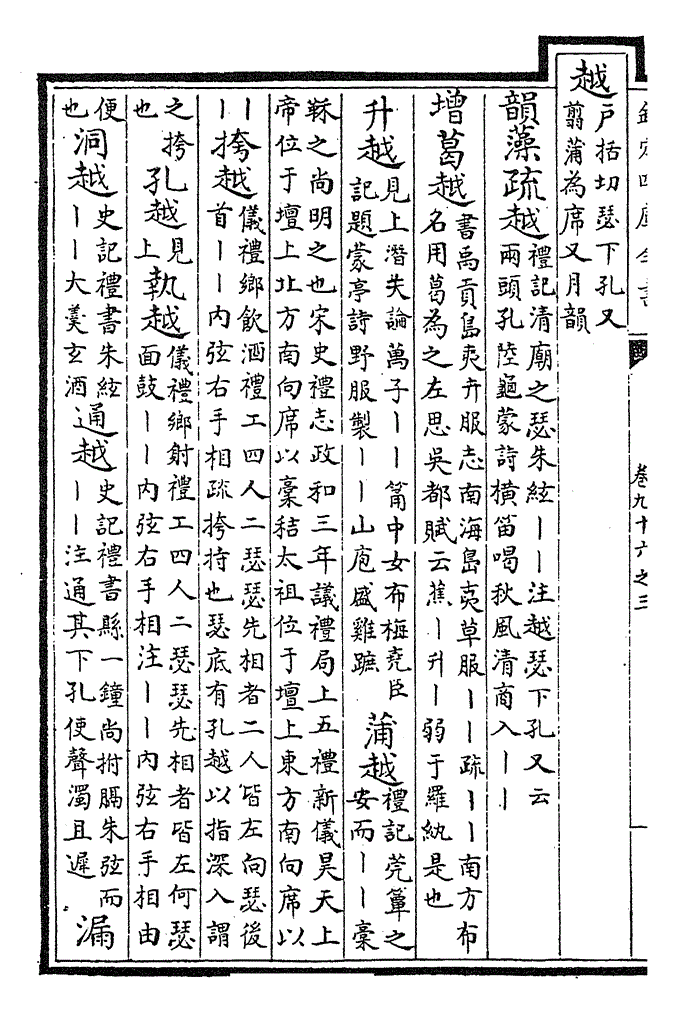 欽定四庫全書
卷九十六之三
越戶括切瑟下孔又
翦蒲為席又月韻
韻藻疏越禮記清廟之瑟朱絃丨丨注越瑟下孔又云
兩頭孔陸龜蒙詩橫笛喝秋風清商入丨丨
增葛越書禹貢島夷卉服志南海島夷草服丨丨疏丨丨南方布
名用葛為之左思吳都賦云蕉丨升丨弱于羅紈是也
升越見上潛夫論萬子丨丨筩中女布梅堯臣
記題蒙亭詩野服製丨丨山庖盛雞蹠
蒲越禮記莞簟之
安而丨丨稾
鞂之尚明之也宋史禮志政和三年議禮局上五禮新儀昊天上
帝位于壇上北方南向席以稾秸太祖位于壇上東方南向席以
丨
丨
挎越儀禮鄉飲酒禮工四人二瑟瑟先相者二人皆左向瑟後
首丨丨內弦右手相疏挎持也瑟底有孔越以指深入謂
之挎
也
孔越見
上
執越儀禮鄉射禮工四人二瑟瑟先相者皆左何瑟
面鼓丨丨內弦右手相注丨丨內弦右手相由
便
也
洞越史記禮書朱絃
丨丨大羹玄酒
通越史記禮書縣一鐘尚拊膈朱弦而
丨丨注通其下孔使聲濁且遲
漏